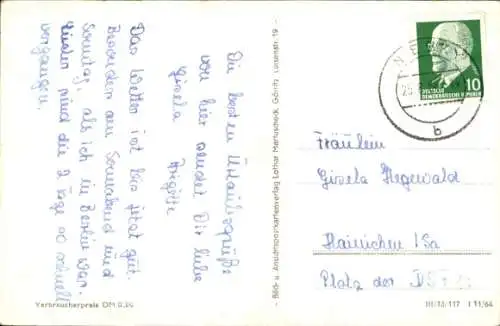 Die besten Urlaubsgrüße
von hier sendet Dir liebe
Gisela
Brigitte
Das Wetter ist bis jetzt gut.
Besonders am Sonnabend und
Sonntag, als ich in Berlin war.
sind die 2 Tage so schnell
vergangen.
Verbraucherpreis DM 0,20
Bild- u. Ansichtspostkartenverlag Lothar Martuscheck, Görlitz, 19
10
DEUTSCHE
DEMOKRATISCHE REPUBLIK
b
Fräulein
Gisela Hegewald
Hainichen / Sa
Platz der
III/13/117 I 11/64